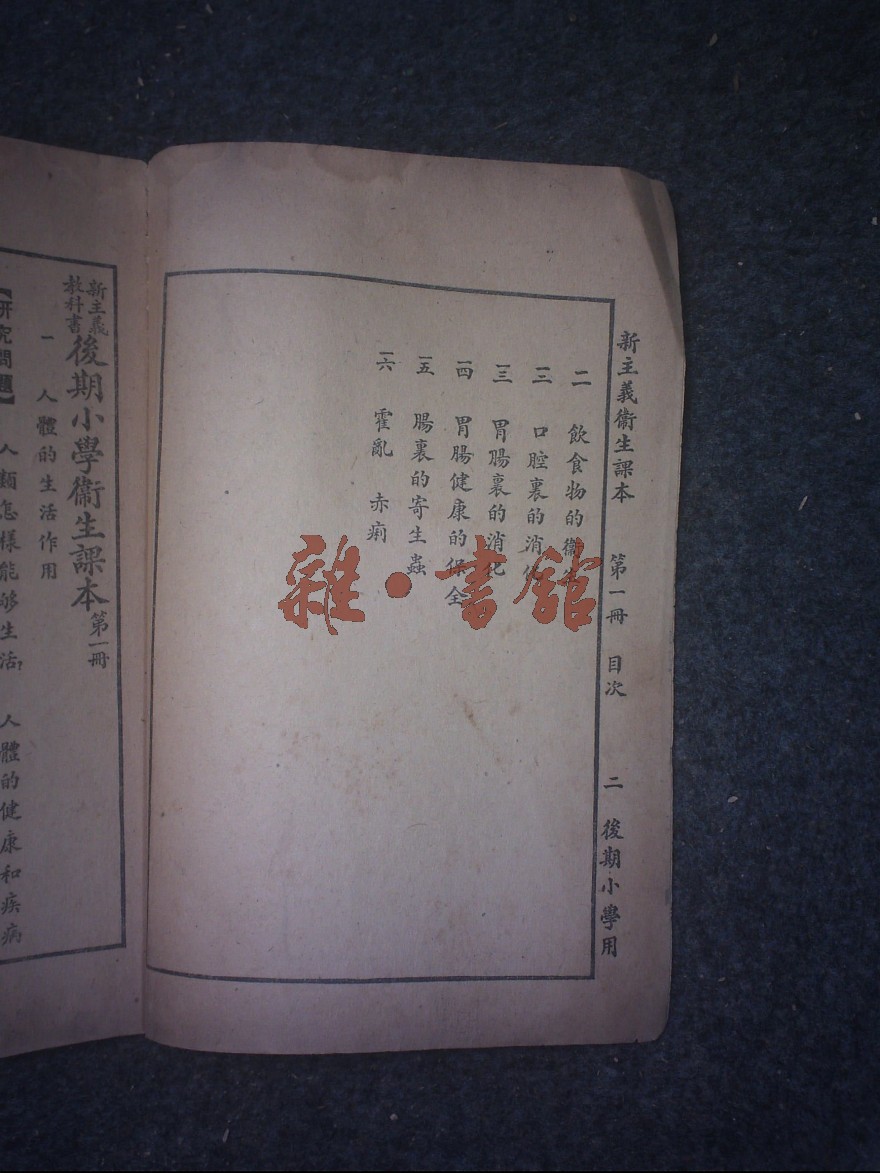 新主義衞生課本 第一冊 目次 二 後期小學用
一一 飲食物的衞生
一二 口腔裏的消化
一三 胃腸裏的消化
一四 胃腸健康的保全
一五 腸裏的寄生蟲
一六 霍亂 赤痢
雜·書館
新主義
教科書
後期小學衞生課本 第一冊
一 人體的生活作用
【研究問題】 人類怎樣能够生活? 人體的健康和疾病